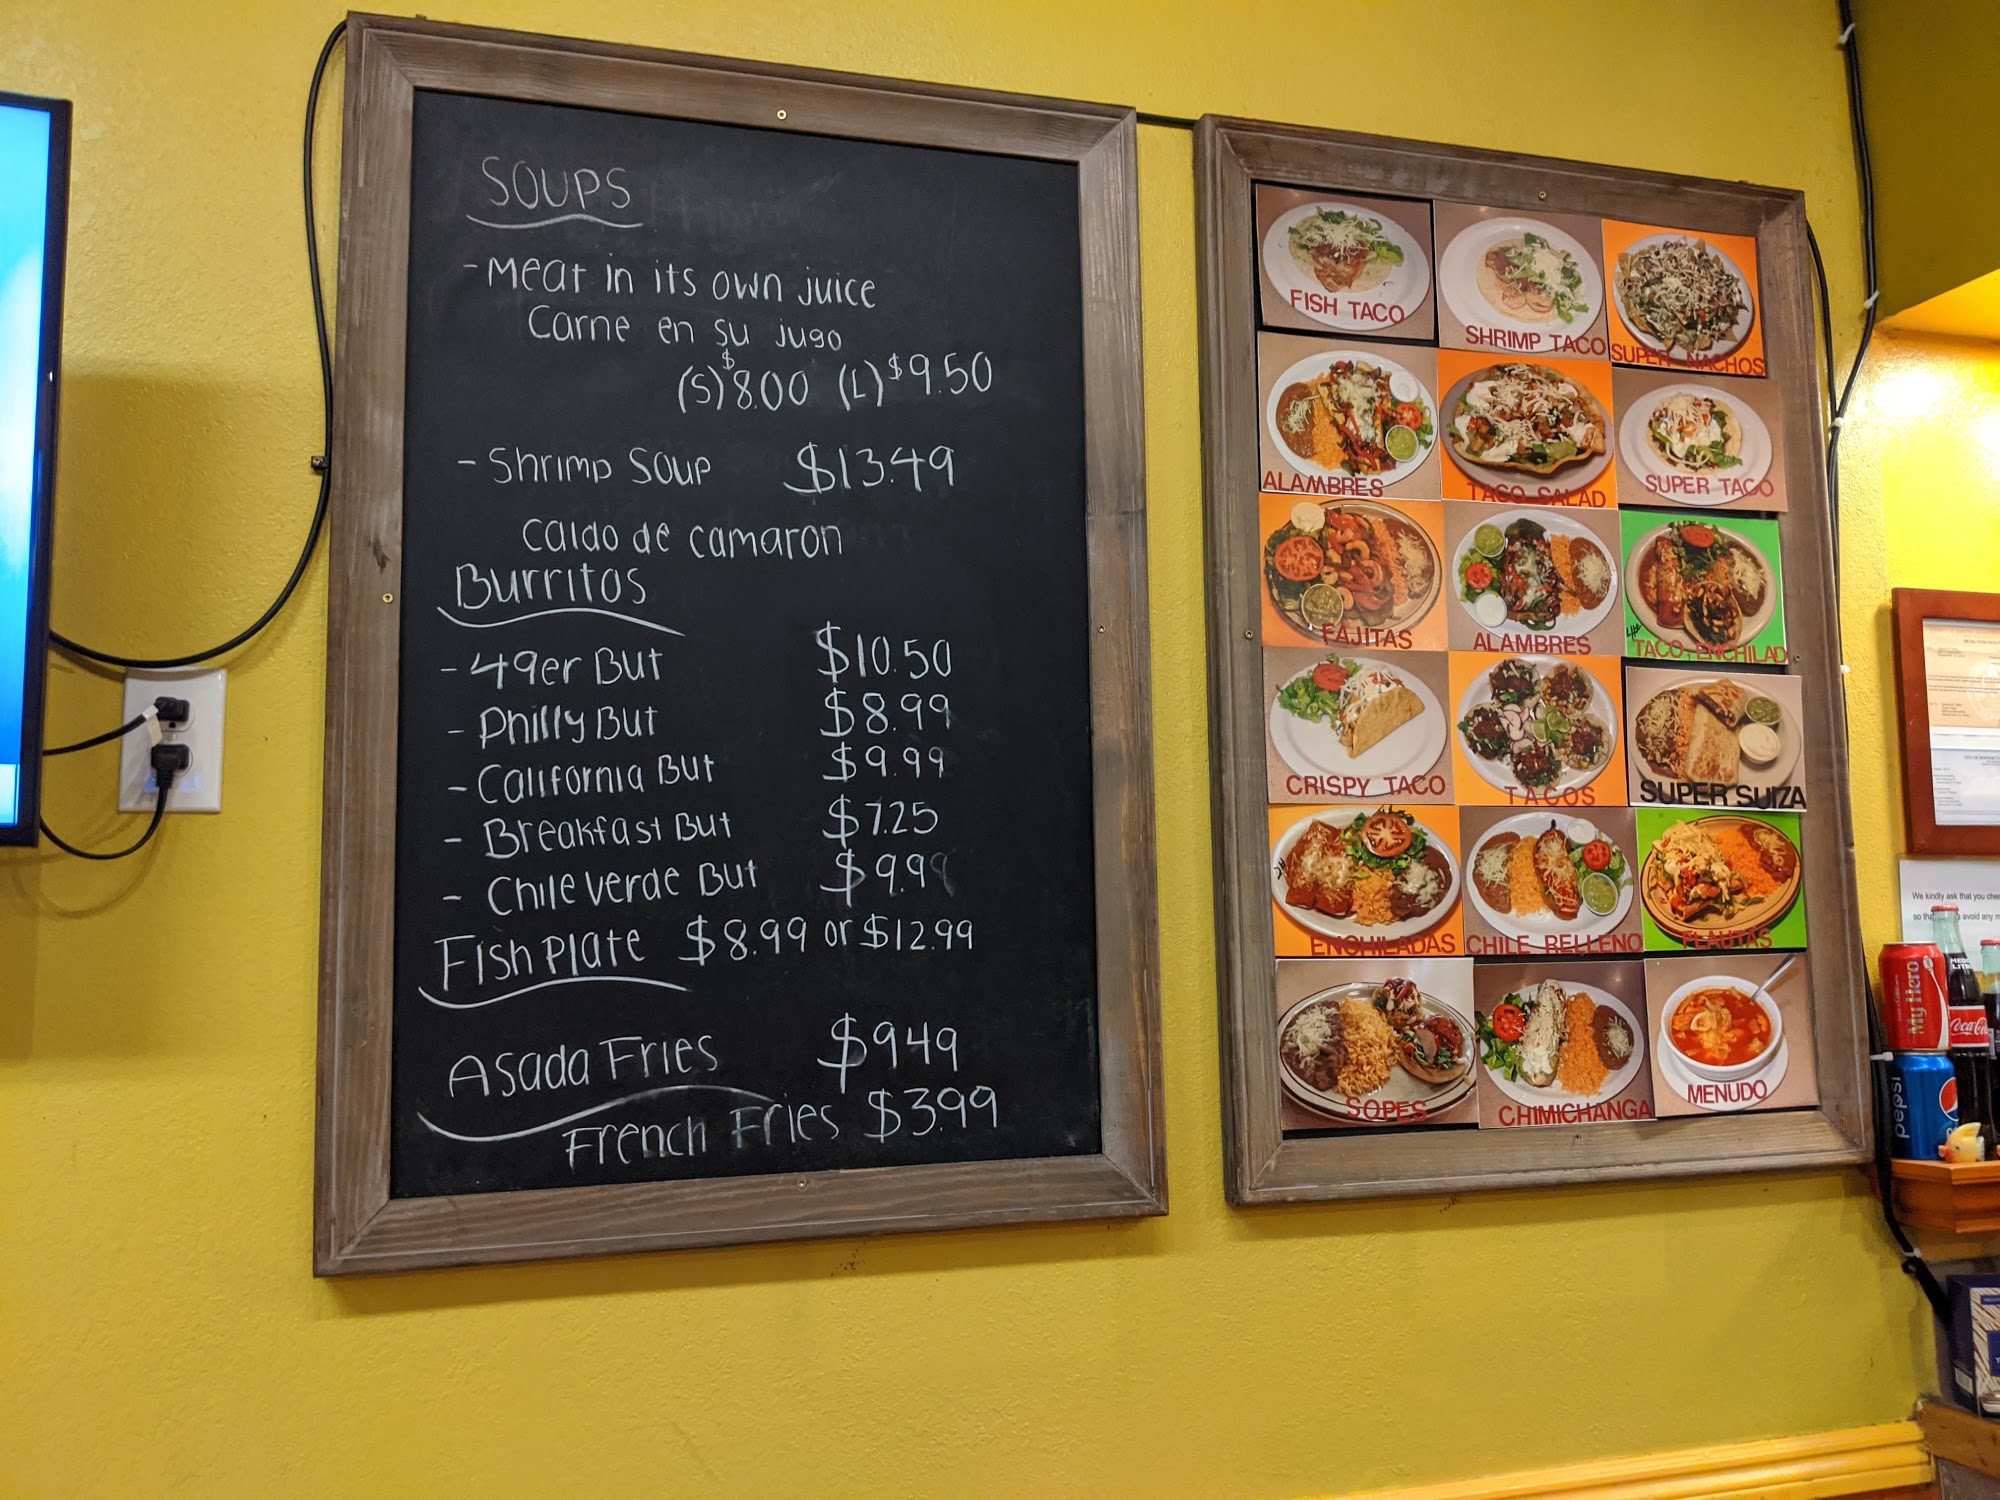 SOUPS
- Meat in its own juice
Carne en su jugo
(S) $8.00 (L) $9.50
- Shrimp Soup $13.49
Caldo de camaron
Burritos
- 49er But $10.50
- Philly But $8.99
- California But $9.99
- Breakfast But $7.25
- Chile Verde But $9.99
Fish Plate $8.99 or $12.99
Asada Fries $9.49
French Fries $3.99
FISH TACO
SHRIMP TACO
SUPER NACHOS
ALAMBRES
TACO SALAD
SUPER TACO
FAJITAS
ALAMBRES
TACO, ENCHILAD
CRISPY TACO
TACOS
SUPER SUIZA
ENCHILADAS
CHILE RELLENO
FLAUTAS
SOPES
CHIMICHANGA
MENUDO
We kindly ask that you
avoid any
My Hero
Coca-Cola
pepsi